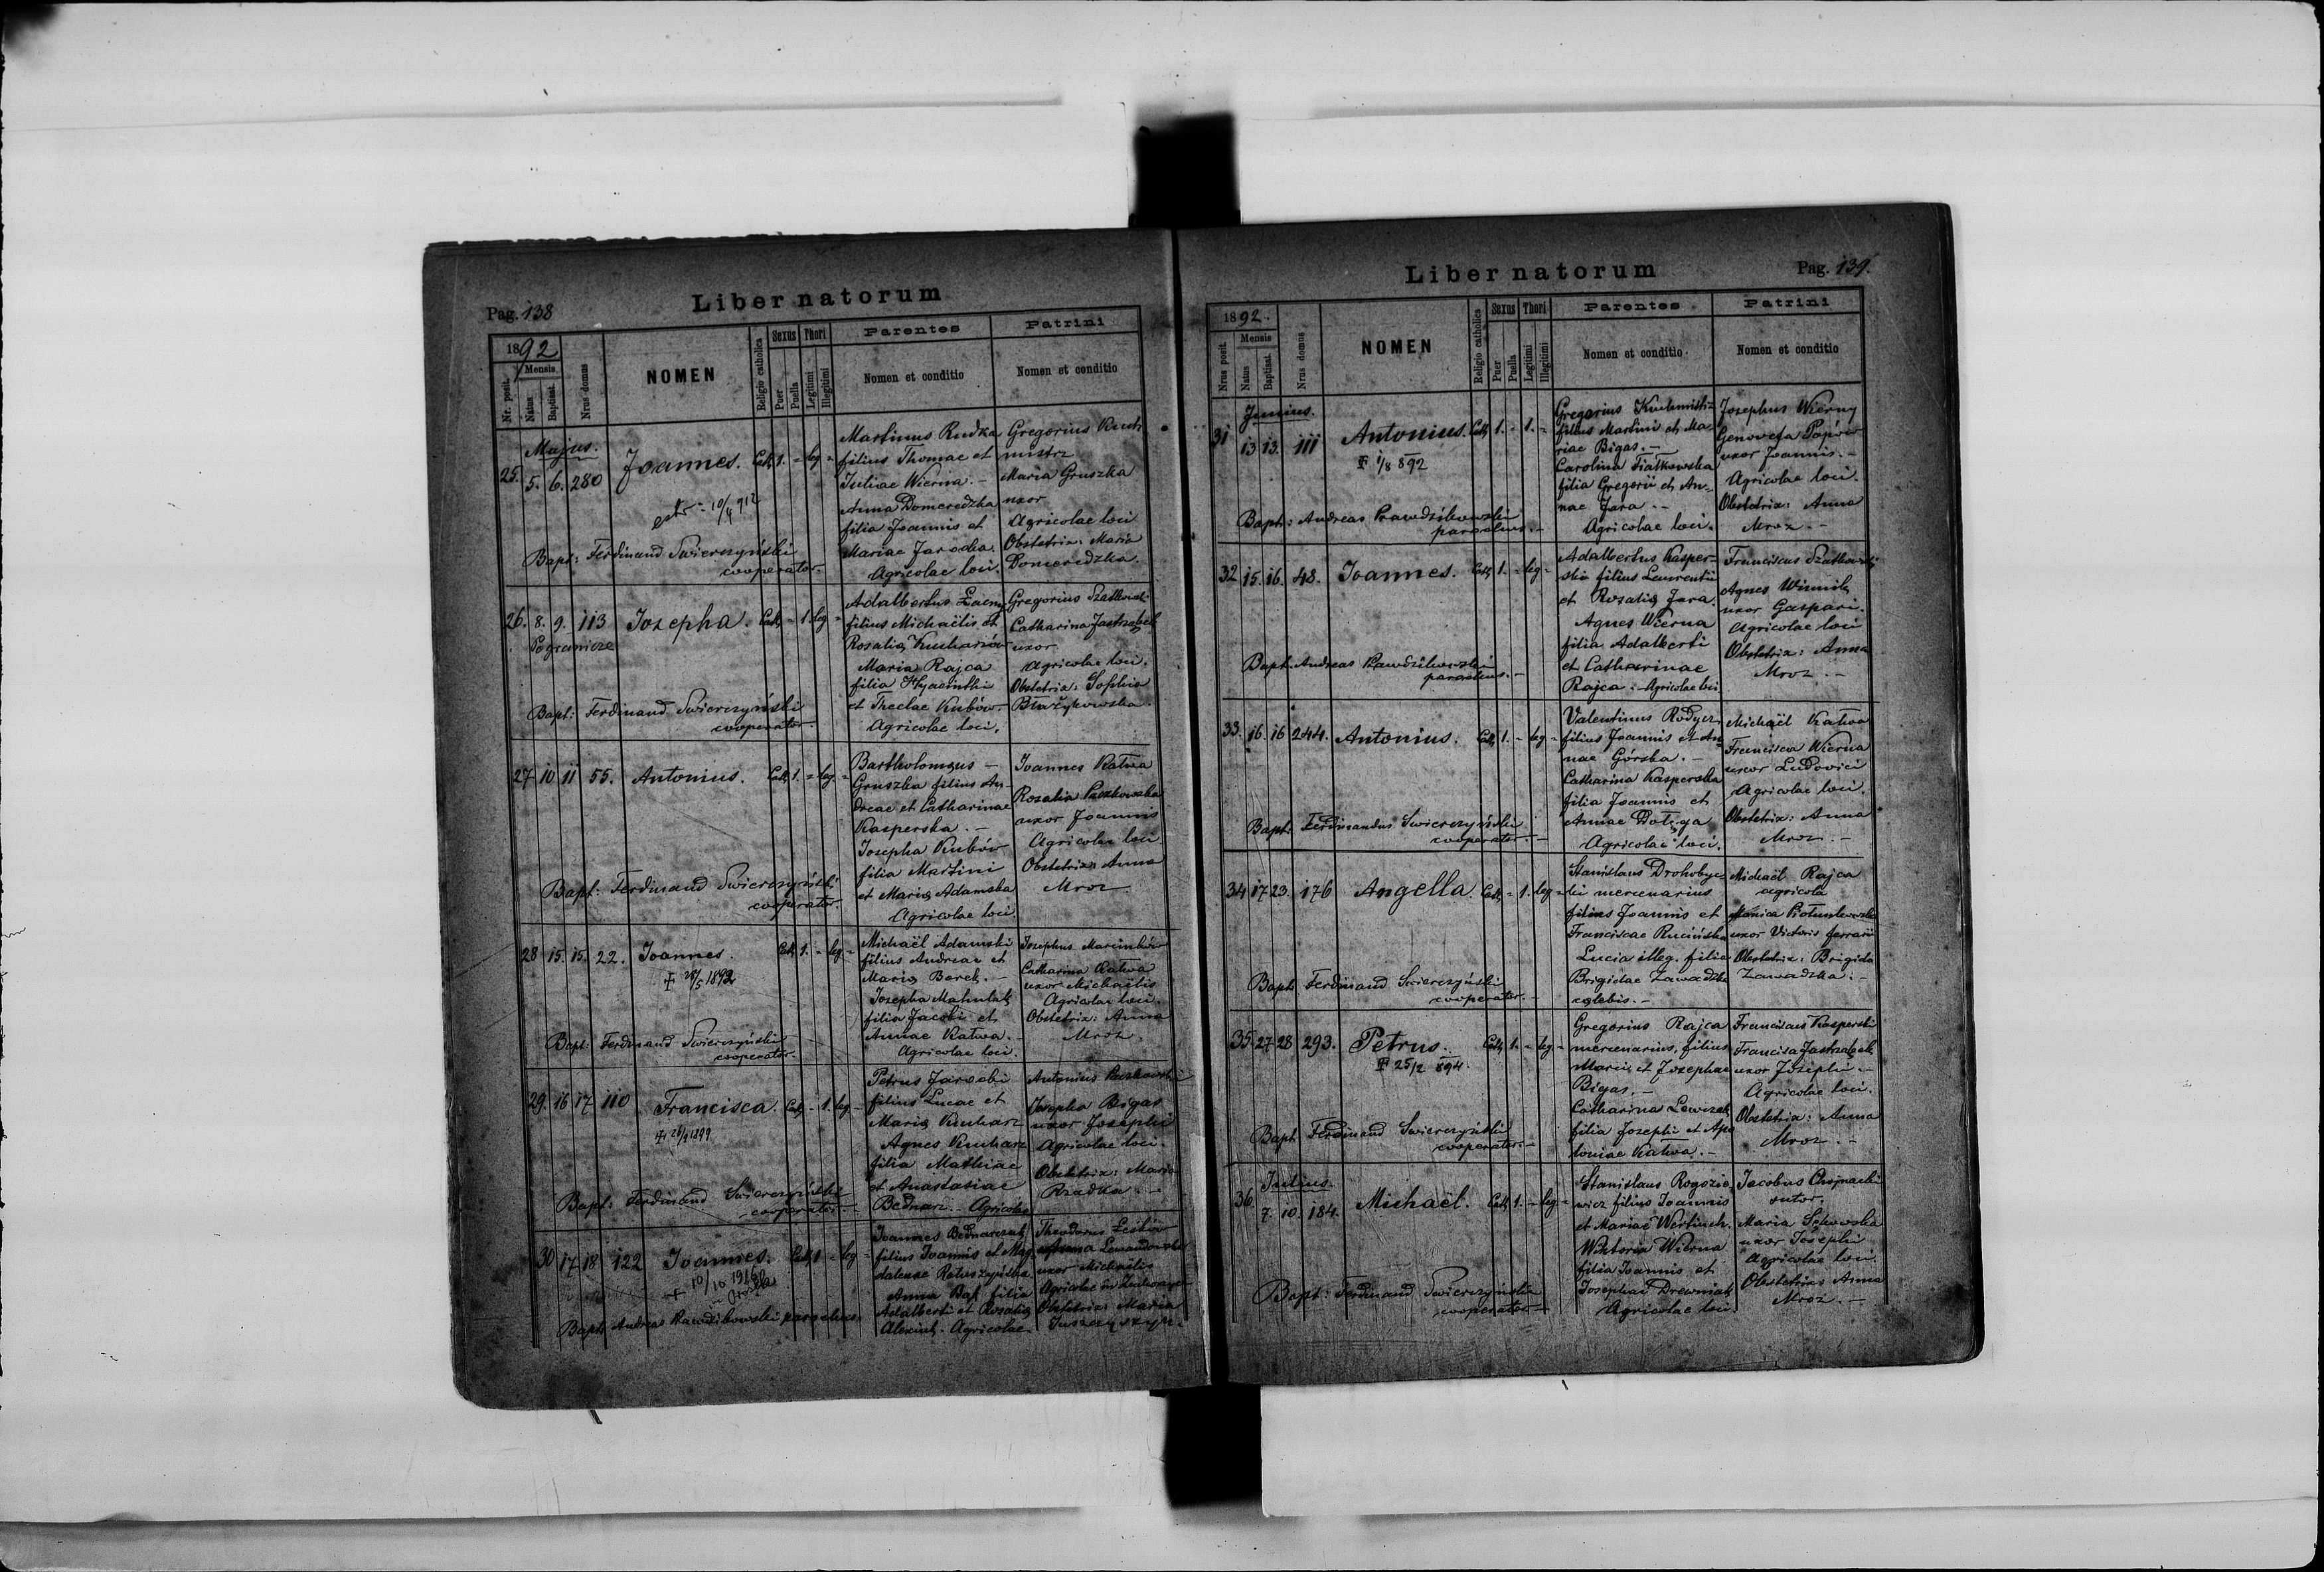 Pag. 138
Liber natorum
1892
Mensis
Nr. posit.
Natus
Baptisat.
Nrus domus
NOMEN
Religio catholica
Sexus
Puer
Puella
Thori
Legitimi
Illegitimi
Parentes
Nomen et conditio
Patrini
Nomen et conditio
Majus.
25. 5. 6. 280 Joannes. Cath. 1. - leg -
extr. 10/4 912
Bapt: Ferdinand Swierczyński
cooperator.
Martinus Rudka
filius Thomae et
Juliae Wierna. -
Anna Domeredzka
filia Joannis et
Mariae Jarocka.
Agricolae loci.
Gregorius Kuch
mistrz
Maria Gruszka
uxor
Agricolae loci
Obstetrix: Maria
Domeredzka.
26. 8. 9. 113 Josepha. Cath. - 1. leg -
Pogranicze
Bapt: Ferdinand Swierczyński
cooperator.
Adalbertus
filius Michaëlis et
Rosalię Kucharzów
Maria Rajca
filia Hyacinthi
et Theclae Kubów.
Agricolae loci.
Gregorius Szatkowski
Catharina Jastrzębek
uxor
Agricolae loci.
Obstetrix: Sophia
Błażykowska.
27 10 11 55. Antonius. Cath. 1. - leg. -
Bapt: Ferdinand Swierczyński
cooperator.
Bartholomęus -
Gruszka filius An-
dreae et Catharinae
Kasperska. -
Josepha Kubów
filia Martini
et Marię Adamska
Agricolae loci.
Joannes Katwa
Rozalia Paszkowska
uxor Joannis
Agricolae loci
Obstetrix Anna
Mroz
28 15. 15. 22. Joannes. Cath. 1. - leg. -
✝ 28/5 1892
Bapt: Ferdinand Swierczyński
cooperator.
Michaël Adamski
filius Andreae et
Marię Borek. -
Josepha Mahulak
filia Jacobi et
Annae Katwa.
Agricolae loci.
Josephus Marcinków
Catharina Katwa
uxor Michaëlis
Agricolae loci.
Obstetrix: Anna
Mroz.
29. 16 17 110 Francisca. Cath. - 1. leg -
Bapt: Ferdinand Swierczyński
cooperator. -
Petrus Jarocki
filius Lucae et
Marię Kucharz
Agnes Kucharz
filia Mathiae
et Anastasiae
Bednarz. - Agricolae
Antonius Paszkowski
Josepha Bigas
uxor Josephi
Agricolae loci.
Obstetrix: Maria
Rzadka. -
30 17 18 122 Joannes. Cath. 1 - leg -
Bapt: Andreas Rawdzikowski parochus.
Joannes Bednarczuk
filius Joannis et Mag-
dalenae
Anna Bąk filia
Adalberti et Rosalię
Alexiuk. Agricolae.
Theodorus
Anna Lewandowska
uxor Michaëlis
Agricolae in
Obstetrix Maria
Juszczyszyn.
Liber natorum
Pag. 139.
1892.
Mensis
Nrus posit.
Natus
Baptisat.
Nrus domus
NOMEN
Religio catholica
Sexus
Puer
Puella
Thori
Legitimi
Illegitimi
Parentes
Nomen et conditio
Patrini
Nomen et conditio
Junius.
31 13 13. 111 Antonius. Cath. 1. - 1. -
✝ 1/8 892
Bapt: Andreas Rawdzikowski
parochus. -
Gregorius Kuchmistrz
filius Martini et Ma-
riae Bigas. -
Carolina Fiałkowska
filia Gregorii et An-
nae Jara. -
Agricolae loci.
Josephus Wierny
Genovefa Papiów
uxor Joannis. -
Agricolae loci.
Obstetrix: Anna
Mroz. -
32 15. 16. 48. Joannes. Cath. 1. - leg -
Bapt: Andreas Rawdzikowski
parochus. -
Adalbertus Kasper-
ski filius Laurentii
et Rosalię Jara.
Agnes Wierna
filia Adalberti
et Catharinae
Rajca. - Agricolae loci
Franciscus Szatkowski
Agnes Winnik
uxor Gaspari.
Agricolae loci
Obstetrix: Anna
Mroz. -
33. 16. 16 244. Antonius. Cath. 1. - leg -
Bapt: Ferdinandus Swierczyński
cooperator. -
Valentinus Rodycz
filius Joannis et An-
nae Górska. -
Catharina Kasperska
filia Joannis et
Annae Dołęga
Agricolae loci.
Michaël Katwa
Francisca Wierna
uxor Ludovici
Agricolae loci.
Obstetrix: Anna
Mroz. -
34 17 23. 176 Angella. Cath. - 1. leg -
Bapt: Ferdinand Swierczyński
cooperator. -
Stanislaus Drohobyc-
ki mercenarius
filius Joannis et
Franciscae Rucińska
Lucia illeg. filia
Brigidae Zawadzka
cęlebis. -
Michaël Rajca
agricola
Monica
uxor Victoris ferrarii
Obstetrix: Brigida
Zawadzka. -
35. 27 28 293. Petrus. Cath. 1. - leg -
✝ 25/2 894.
Bapt: Ferdinand Swierczyński
cooperator. -
Gregorius Rajca
mercenarius, filius
Marci et Josephae
Bigas. -
Catharina Lewczak
filia Josephi et Apo
loniae Katwa. -
Franciscus Kasperski
Francisca Jastrzębek
uxor Josephi -
Agricolae loci.
Obstetrix: Anna
Mroz. -
Julius.
36. 7. 10. 184. Michaël. Cath. 1. - leg. -
Bapt: Ferdinand Swierczyński
cooperator -
Stanislaus Rogozie-
wicz filius Joannis
et Mariae Wertinch.
Wiktoria Wierna
filia Joannis et
Josephae Drewniak
Agricolae loci.
Jacobus Chojnacki
sutor.
Maria Sękowska
uxor Josephi
Agricolae loci.
Obstetrix Anna
Mroz. -